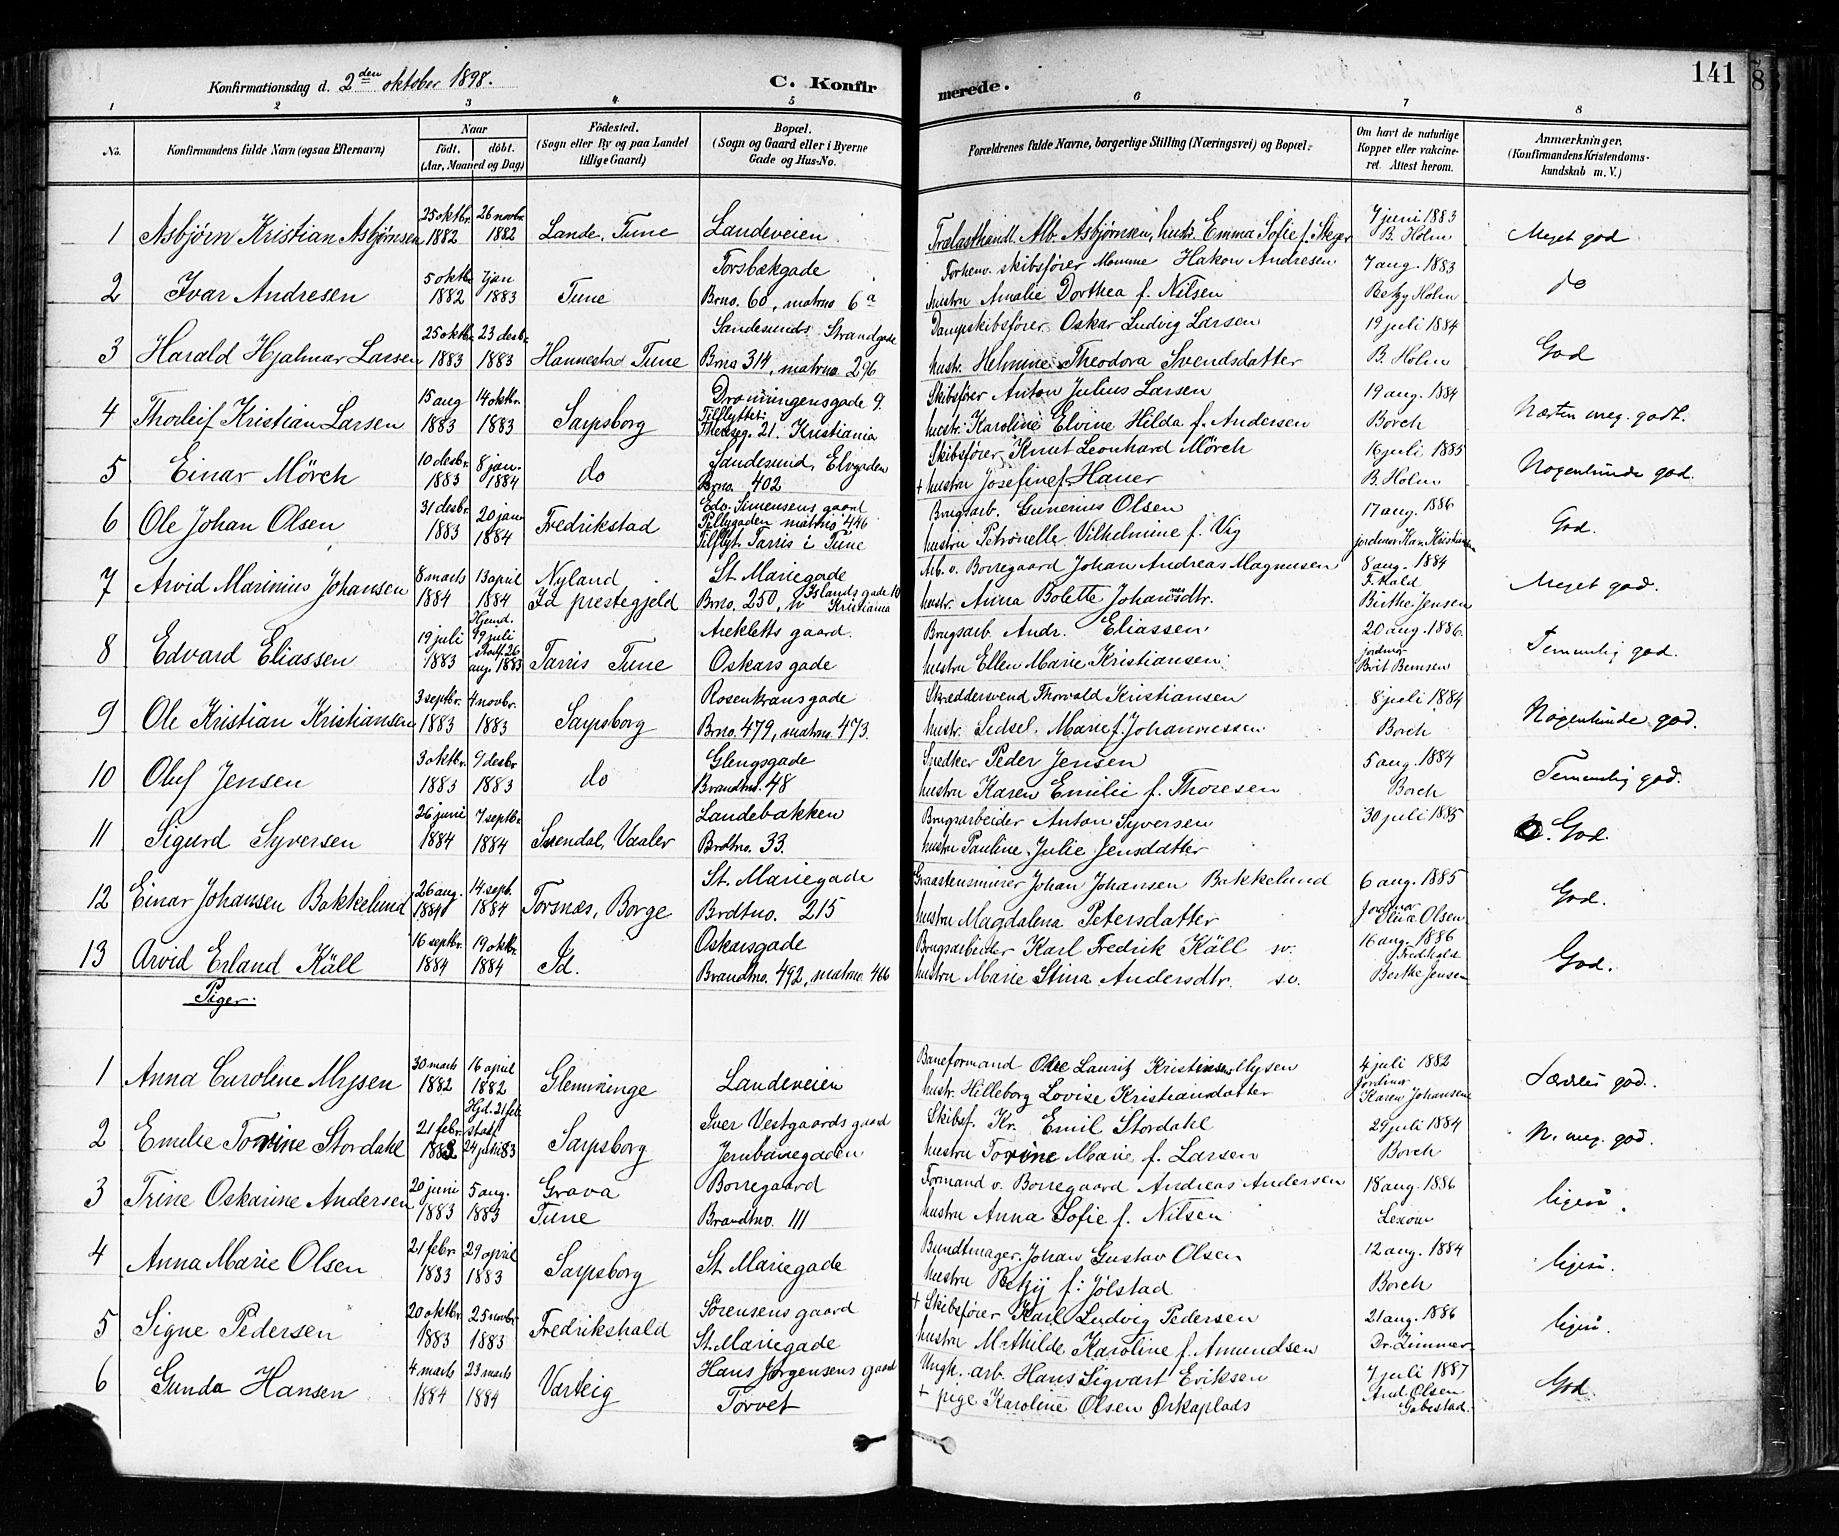 Konfirmationsdag d. 2den oktober 1898.
C. Konfirmerede.
141
1 2 3 4 5 6 7 8
No.
Konfirmandens fulde Navn (ogsaa Efternavn)
Naar
født. døbt.
(Aar, Maaned og Dag)
Födested.
(Sogn eller By og paa Landet
tillige Gaard)
Bopæl.
(Sogn og Gaard eller i Byerne
Gade og Hus-No.
Forældrenes fulde Navne, borgerlige Stilling (Næringsvei) og Bopæl.
Om havt de naturlige
Kopper eller vakcine-
ret. Attest herom.
Anmærkninger.
(Konfirmandens Kristendoms-
kundskab m. V.)
1 Asbjörn Kristian Asbjörnsen
25 oktbr. 1882
26 novbr. 1882
Lande, Tune
Landeveien
Trælasthandl. Alb. Asbjørnsen, hustr. Emma Sofie f.
7 juni 1883
B. Holm
Meget god
2 Ivar Andresen
5 oktbr. 1882
7 jan 1883
Tune
Torsbækgade
Brno. 60, matrno 6a
Forhenv. skibsfører Hakon Andresen
hustru Amalie Dorthea f. Nilsen
7 aug. 1883
Betzy Holm
do
3 Harald Hjalmar Larsen
25 oktbr. 1883
23 desbr. 1883
Hannestad Tune
Sandesunds Strandgade
Brno 314, matrno 296
Dampskibsfører Oskar Ludvig Larsen
hustr. Helmine Theodora Svendsdatter
19 juli 1884
B. Holm
God
4 Thorleif Kristian Larsen
15 aug 1883
14 oktbr. 1883
Sarpsborg
Dronningensgade 9.
Tilflyttet:
21. Kristiania
Skibsfører Anton Julius Larsen
hustr. Karoline Elvine Hilda f. Andersen
19 aug. 1884
Borch
Næsten meg. godt.
5 Einar Mörch
10 desbr. 1883
8 jan. 1884
do
Sandesund, Elvgaden
Brno. 402
Skibsfører Knut Leonhard Mörch
+ hustru Josefine f. Hauer
16 juli 1885
B. Holm
Nogenlunde god.
6 Ole Johan Olsen
31 desbr. 1883
20 jan 1884
Fredrikstad
Edv. Simensens gaard
Pellygaden matrno 446
Tilflyt. Tarris i Tune
Brugsarb. Gunerius Olsen
hustru Petronelle Vilhelmine f. Vig
17 aug. 1886
jordmor Kristiansen
God.
7 Arvid Marinius Johansen
8 marts 1884
13 april 1884
Nyland
Id prestegjeld
St. Mariegade
Brno. 250, Islandsgade 10
Kristiania
Arb. v. Borregaard Johan Andreas Magnusen
hustr. Anna Bolette Johannesdtr.
8 aug. 1884
F.hald
Birthe Jensen
Meget god.
8 Edvard Eliassen
19 juli 1883
Hjemd.
29 juli
stadf. 26
aug. 1883
Tarris Tune
Arekletts gaard.
Oskars gade
Brugsarb. Andr. Eliassen
hustru Ellen Marie Kristiansen
20 aug. 1886.
jordmor
Brit Bernsen
Temmelig god.
9 Ole Kristian Kristiansen
3 septbr. 1883
4 novbr. 1883
Sarpsborg
Rosenkransgade
Brno. 479, matrno. 473.
Skreddersvend Thorvald Kristiansen
hustr. Sidsel Marie f. Johannessen
8 juli 1884
Borch
Nogenlunde god.
10 Oluf Jensen
3 oktbr. 1883
9 desbr 1883
do
Glengsgade
Brandtno. 48
Snedker Peder Jensen
hustru Karen Emilie f. Thoresen
5 aug. 1884
Borch
Temmelig god.
11 Sigurd Syversen
26 juni 1884
7 septbr. 1884
Svendal, Vaaler
Landebakken
Brdtno. 33.
Brugsarbeider Anton Syversen
hustru Pauline Julie Jensdatter
30 juli 1885
God.
12 Einar Johansen Bakkelund
26 aug. 1884
14 septb. 1884
Torsnæs, Borge
St. Mariegade
Brdtno. 215
Graastensminer Johan Johansen Bakkelund
hustru Magdalena Petersdatter
6 aug. 1885
Jordmor
Olsen
God.
13 Arvid Erland Käll
16 septbr. 1884
19 oktbr. 1884
Id.
Oskarsgade
Brandtno. 492, matrno. 466
Brugsarbeider Karl Fredrik Käll sv.
hustru Marie Stina Andersdtr. sv.
16 aug. 1886
Fredhald
Berthe Jensen
God.
Piger.
1 Anna Caroline Mysen
30 marts 1882
16 april 1882
Glemminge
Landeveien
Baneformand Ole Lauritz Kristensen Mysen
hustr. Hilleborg Lovise Kristiansdatter
4 juli 1882
jordmor
Karen Johansen
Særdeles god.
2 Emilie Torvine Stordahl
21 febr. 1883
Hjd. 21 feb
stadf
24 juni 83
Sarpsborg
Iver Vestgaards gaard
Jernbanegaden
Skibsf. Kr. Emil Stordahl
hustru Torvine Marie f. Larsen
29 juli 1884
Borch
N. meg. god.
3 Trine Oskarine Andersen
20 juni 1883
5 aug. 1883
Grava
Tune
Borregaard
Brandtno. 111
Formand v. Borregaard Andreas Andersen
hustru Anna Sofie f. Nilsen
18 aug. 1886
Lexow
ligesaa.
4 Anna Marie Olsen
21 febr. 1883
29 april 1883
Sarpsborg
St. Mariegade
Bundtmager Johan Gustav Olsen
hustru Betzy f: Jölstad
12 aug. 1884
Borch
ligesaa.
5 Signe Pedersen
20 oktbr. 1883
25 novbr. 1883
Fredrikshald
Sörensens gaard
St. Mariegade
+ Skibsfører Karl Ludvig Pedersen
hustru Mathilde Karoline f. Amundsen
21 aug. 1886
Dr. Zimmer
ligesaa.
6 Gunda Hansen
4 marts 1884
23 marts 1884
Varteig
Hans Jørgensens gaard
Torvet
Ungk. arb. Hans Sigvart Eriksen
+ pige Karoline Olsen Orkaplads
7 juli 1887
And. Olsen
Gabestad.
God.